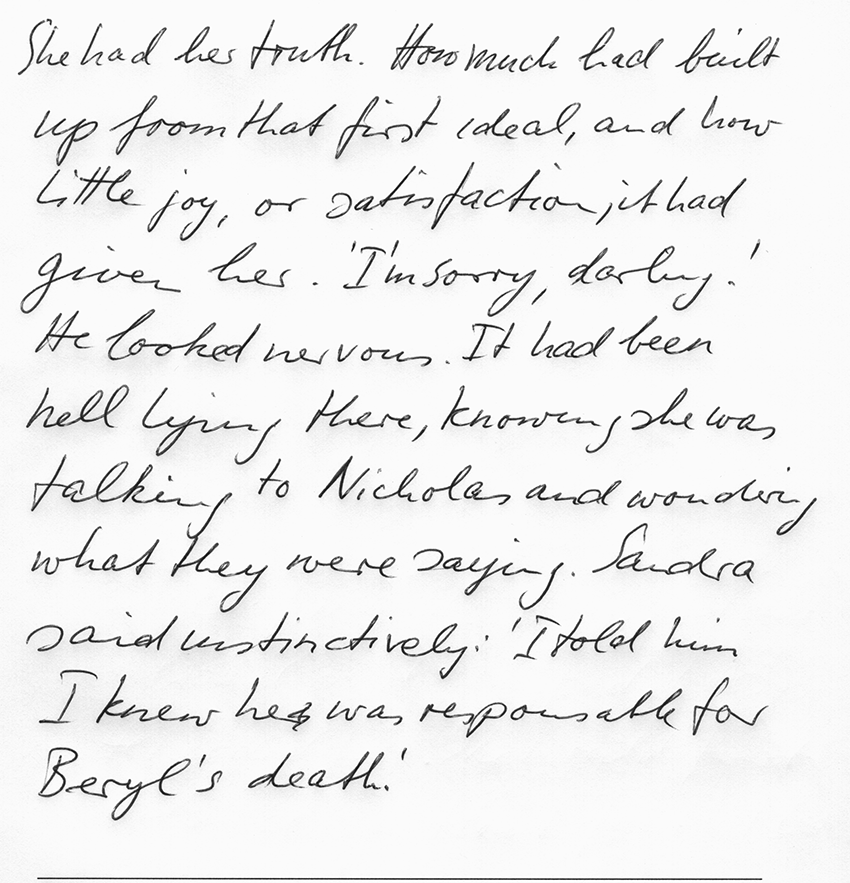 She had her truth. How much had built
up from that first ideal, and how
little joy, or satisfaction, it had
given her. 'I'm sorry, darling.'
He looked nervous. It had been
hell lying there, knowing she was
talking to Nicholas and wondering
what they were saying. Sandra
said instinctively: 'I told him
I knew he was responsable for
Beryl's death.'